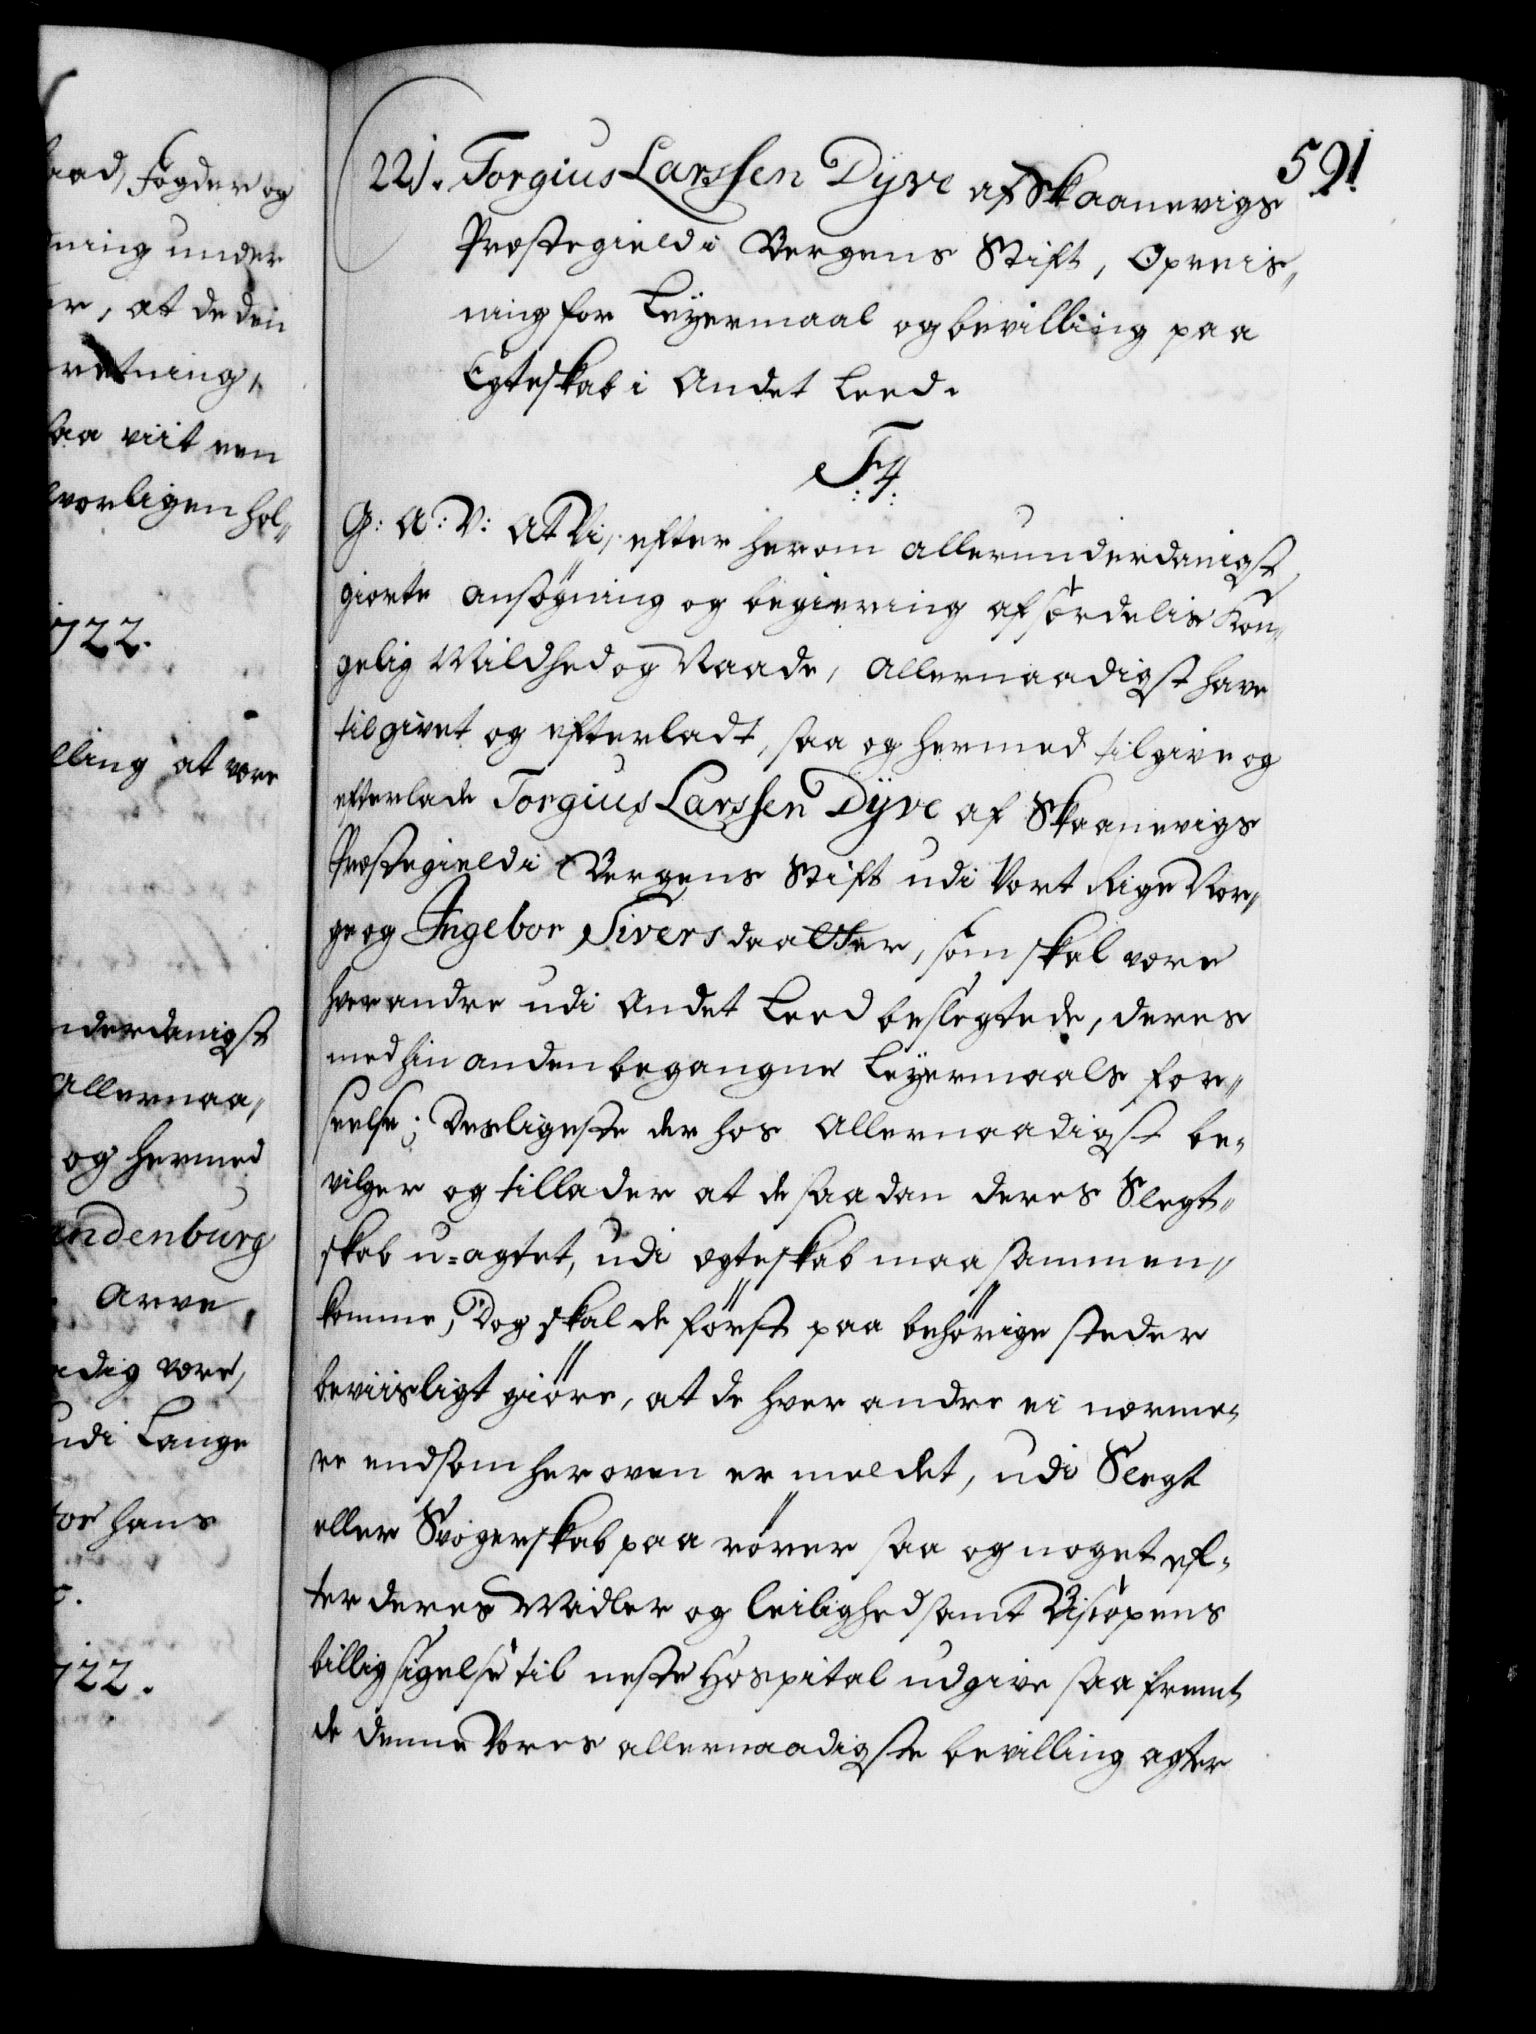 aad, Fogder og
ning under
er, at de den
retning,
saa viit een
lvorligen hol„
1722.
lling at være
nderdanigst
Allernaa„
og hermed
andenburg
Arve,
adig være,
udi Lange
for hans
1722.
591
221. Torgius Larssen Dyve af Skaanevigs
Præstegield i Bergens Stift, Opreis„
ning for Leyermaal og bevilling paa
Egteskab i Andet Leed.
F:4:
G: A: V: At Vi, efter herom allerunderdanigst
giorte ansøgning og begiering af særdelis Kon„
gelig Mildhed og Naade, allernaadigst have
tilgivet og efterladt, saa og hermed tilgive og
efterlade Torgius Larssen Dyve af Skaanevigs
Præstegield i Bergens Stift udi Vort Rige Nor„
ge og Ingebor Siversdaatter, som skal være
hver andre udi Andet Leed beslegtede, deres
med hinanden begangne Leyermaals for„
seelse; Desligeste der hos Allernaadigst be„
vilger og tillader at de saadan deres Slegt„
skab u=agtet, udi ægteskab maa sammen„
komme; Dog skal de først paa behørige steder
beviisligt giøre, at de hver andre ei nærme„
re end som her oven er meldet, udi Slegt
eller Svogerskab paa rører saa og noget ef„
ter deres Midler og leilighed samt Biscopens
billig sigelse til neste Hospital udgive saa fremt
de denne Vores allernaadigste bevilling agter